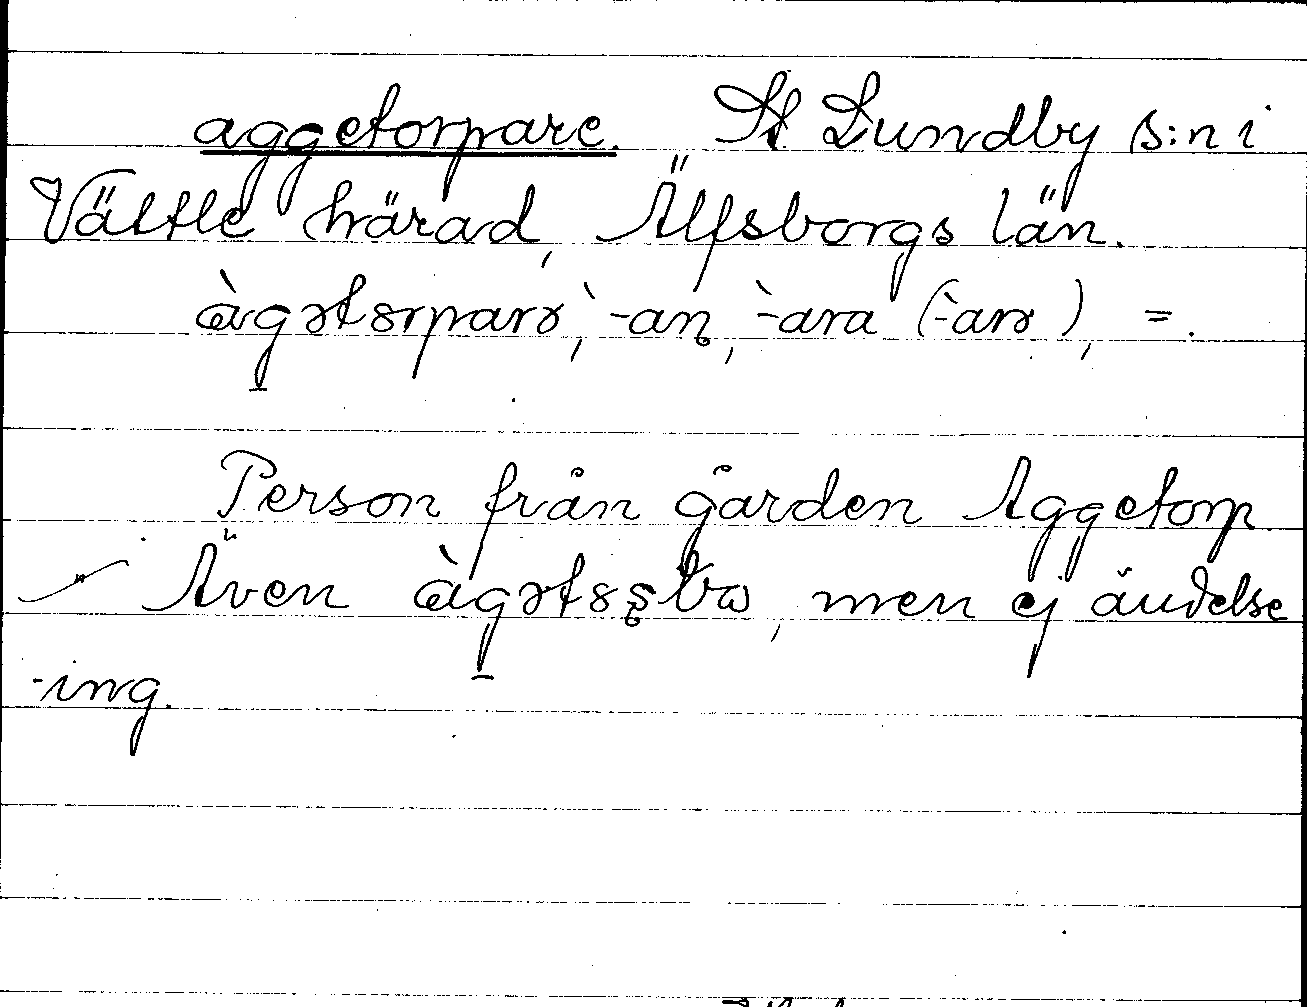 aggetorpare. St Lundby s:n i
Vättle härad, Älfsborgs län.
àgətɤrparɤ, `-an, `-ara (`-arɤ), =.
Person från gården Aggetorp
Även àgətɤsbω, men ej ändelse
-ing.